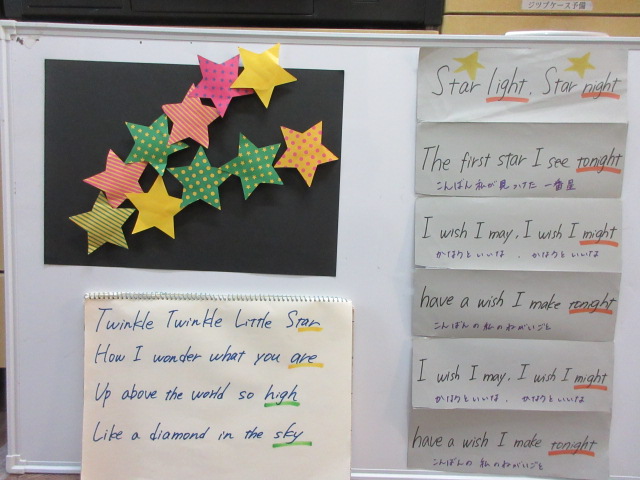 ジップケース予備
Star light, Star night
The first star I see tonight
こんばん 私が見つけた 一番星
I wish I may, I wish I might
かなうといいな 、 かなうといいな
have a wish I make tonight
こんばんの 私のねがいごと
I wish I may, I wish I might
かなうといいな 、 かなうといいな
have a wish I make tonight
こんばんの 私のねがいごと
Twinkle Twinkle Little Star
How I wonder what you are
Up above the world so high
Like a diamond in the sky